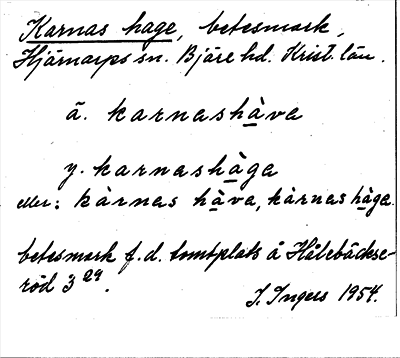 Karnas hage, betesmark,
Hjärnarps sn. Bjäre hd. Krist. län.
ä. karnashàva
y. karnashàga
eller: kàrnas hàva, kàrnas hàga.
betesmark f.d. tomtplats å Hålebäckse-
röd 3²⁹.
I. Ingers 1954.